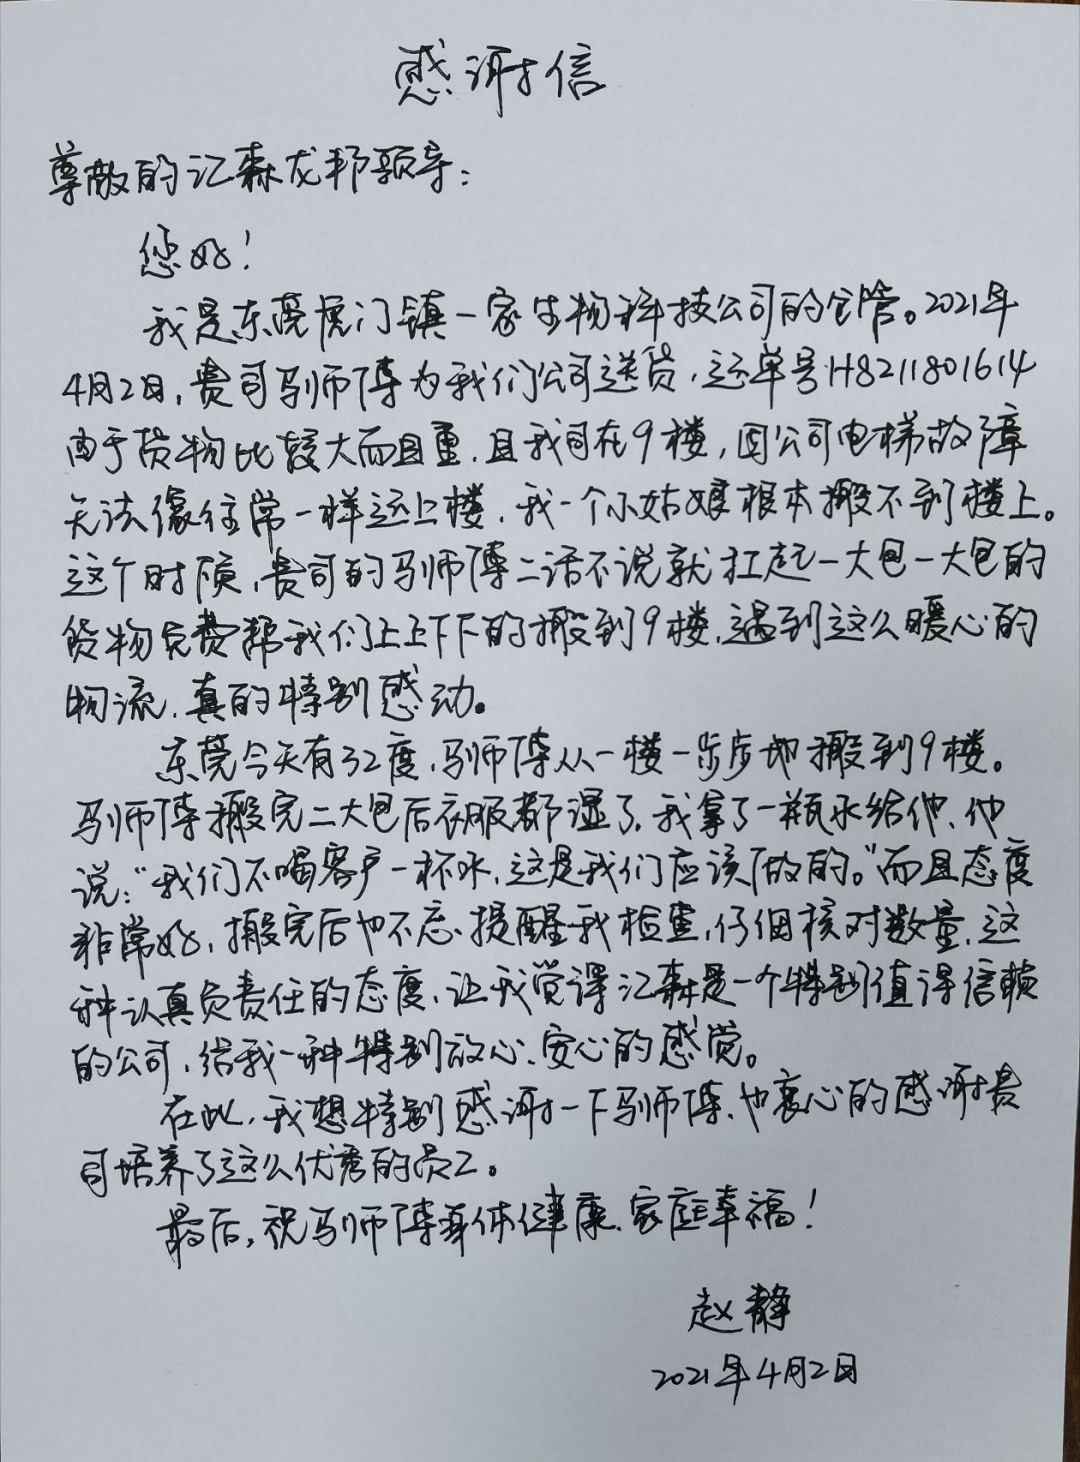 感谢信
尊敬的汇森龙邦领导：
您好！
我是东莞虎门镇一家生物科技公司的仓管。2021年
4月2日，贵司马师傅为我们公司送货，运单号H8211801614
由于货物比较大而且重，且我司在9楼，因公司电梯故障
无法像往常一样运上楼，我一个小姑娘根本搬不到楼上。
这个时候，贵司的马师傅二话不说就扛起一大包一大包的
货物免费帮我们上上下下的搬到9楼，遇到这么暖心的
物流，真的特别感动。
东莞今天有32度，马师傅从一楼一步步地搬到9楼。
马师傅搬完二大包后衣服都湿了，我拿了一瓶水给他，他
说：“我们不喝客户一杯水，这是我们应该做的。”而且态度
非常好，搬完后也不忘提醒我检查，仔细核对数量，这
种认真负责任的态度，让我觉得汇森是一个特别值得信赖
的公司，给我一种特别放心、安心的感觉。
在此，我想特别感谢一下马师傅，也衷心的感谢贵
司培养了这么优秀的员工。
最后，祝马师傅身体健康，家庭幸福！
赵静
2021年4月2日